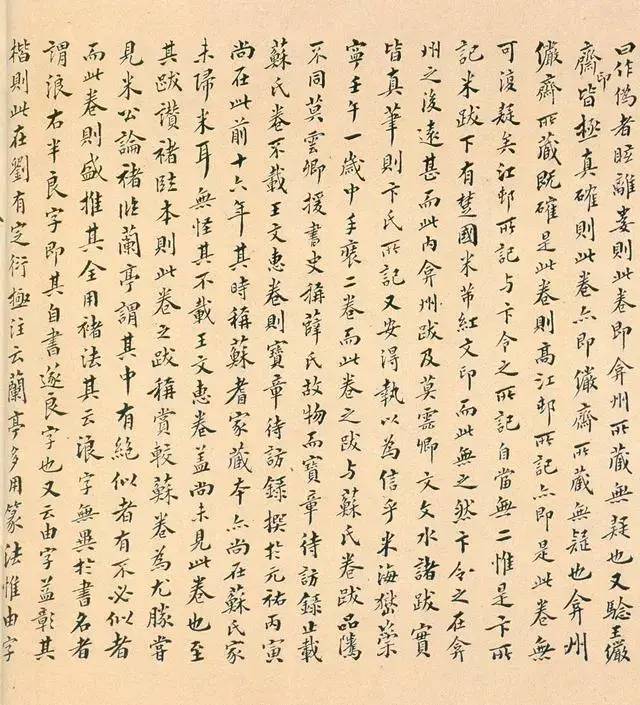 曰作偽者眩離婁則此卷即弇州所藏無疑也又驗王儼
齋印皆極真確則此卷亦即儼齋所藏無疑也弇州
儼齋所藏既確是此卷則高江邨所記亦即是此卷無
可復疑矣江邨所記与卞令之所記自當無二惟是卞所
記米跋下有楚國米芾紅文印而此無之然卞令之在弇
州之後遠甚而此內弇州跋及莫雲卿文文水諸跋實
皆真筆則卞氏所記又安得執以為信乎米海嶽崇
寧壬午一歲中手裝二卷而此卷之跋与蘇氏卷跋品隲
不同莫雲卿援書史稱薛氏故物而寶章待訪錄止載
蘇氏卷不載王文惠卷則寶章待訪錄撰於元祐丙寅
尚在此前十六年其時稱蘇耆家藏本亦尚在蘇氏家
未歸米耳無怪其不載王文惠卷蓋尚未見此卷也至
其跋讚褚臨本則此卷之跋稱賞較蘇卷為尤勝嘗
見米公論褚臨蘭亭謂其中有絕似者有不必似者
而此卷則盛推其全用褚法其云浪字無異於書名者
謂浪右半良字即其自書遂良字也又云由字益彰其
楷則此在劉有定衍極注云蘭亭多用篆法惟由字